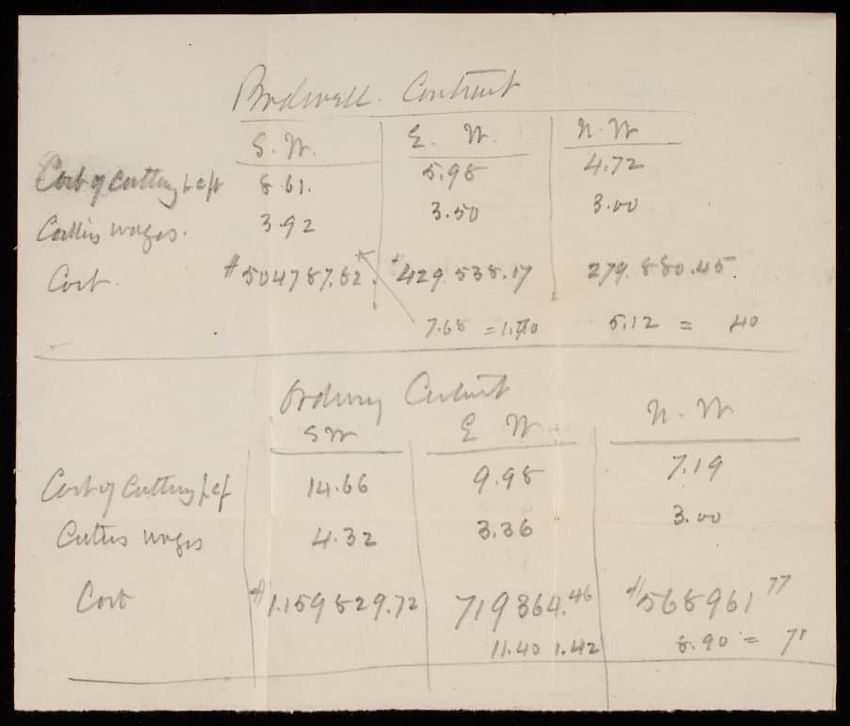 Bodwell Contract
S.W. E. W. N.W
Cost of Cutting p cft 8.61. 5.98 4.72
Cutters wages. 3.92 3.50 3.00
Cost $504787.82. $429 538.17 279.880.45.
7.68 = 1.70 5.12 = 40
Ordinary Contract
SW E W N. W
Cost of Cutting p cf 14.66 9.98 7.19
Cutters wages 4.32 3.36 3.00
Cost $1.159829.72 719864.46 $568961 77
11.40 1.42 8.90 = 71